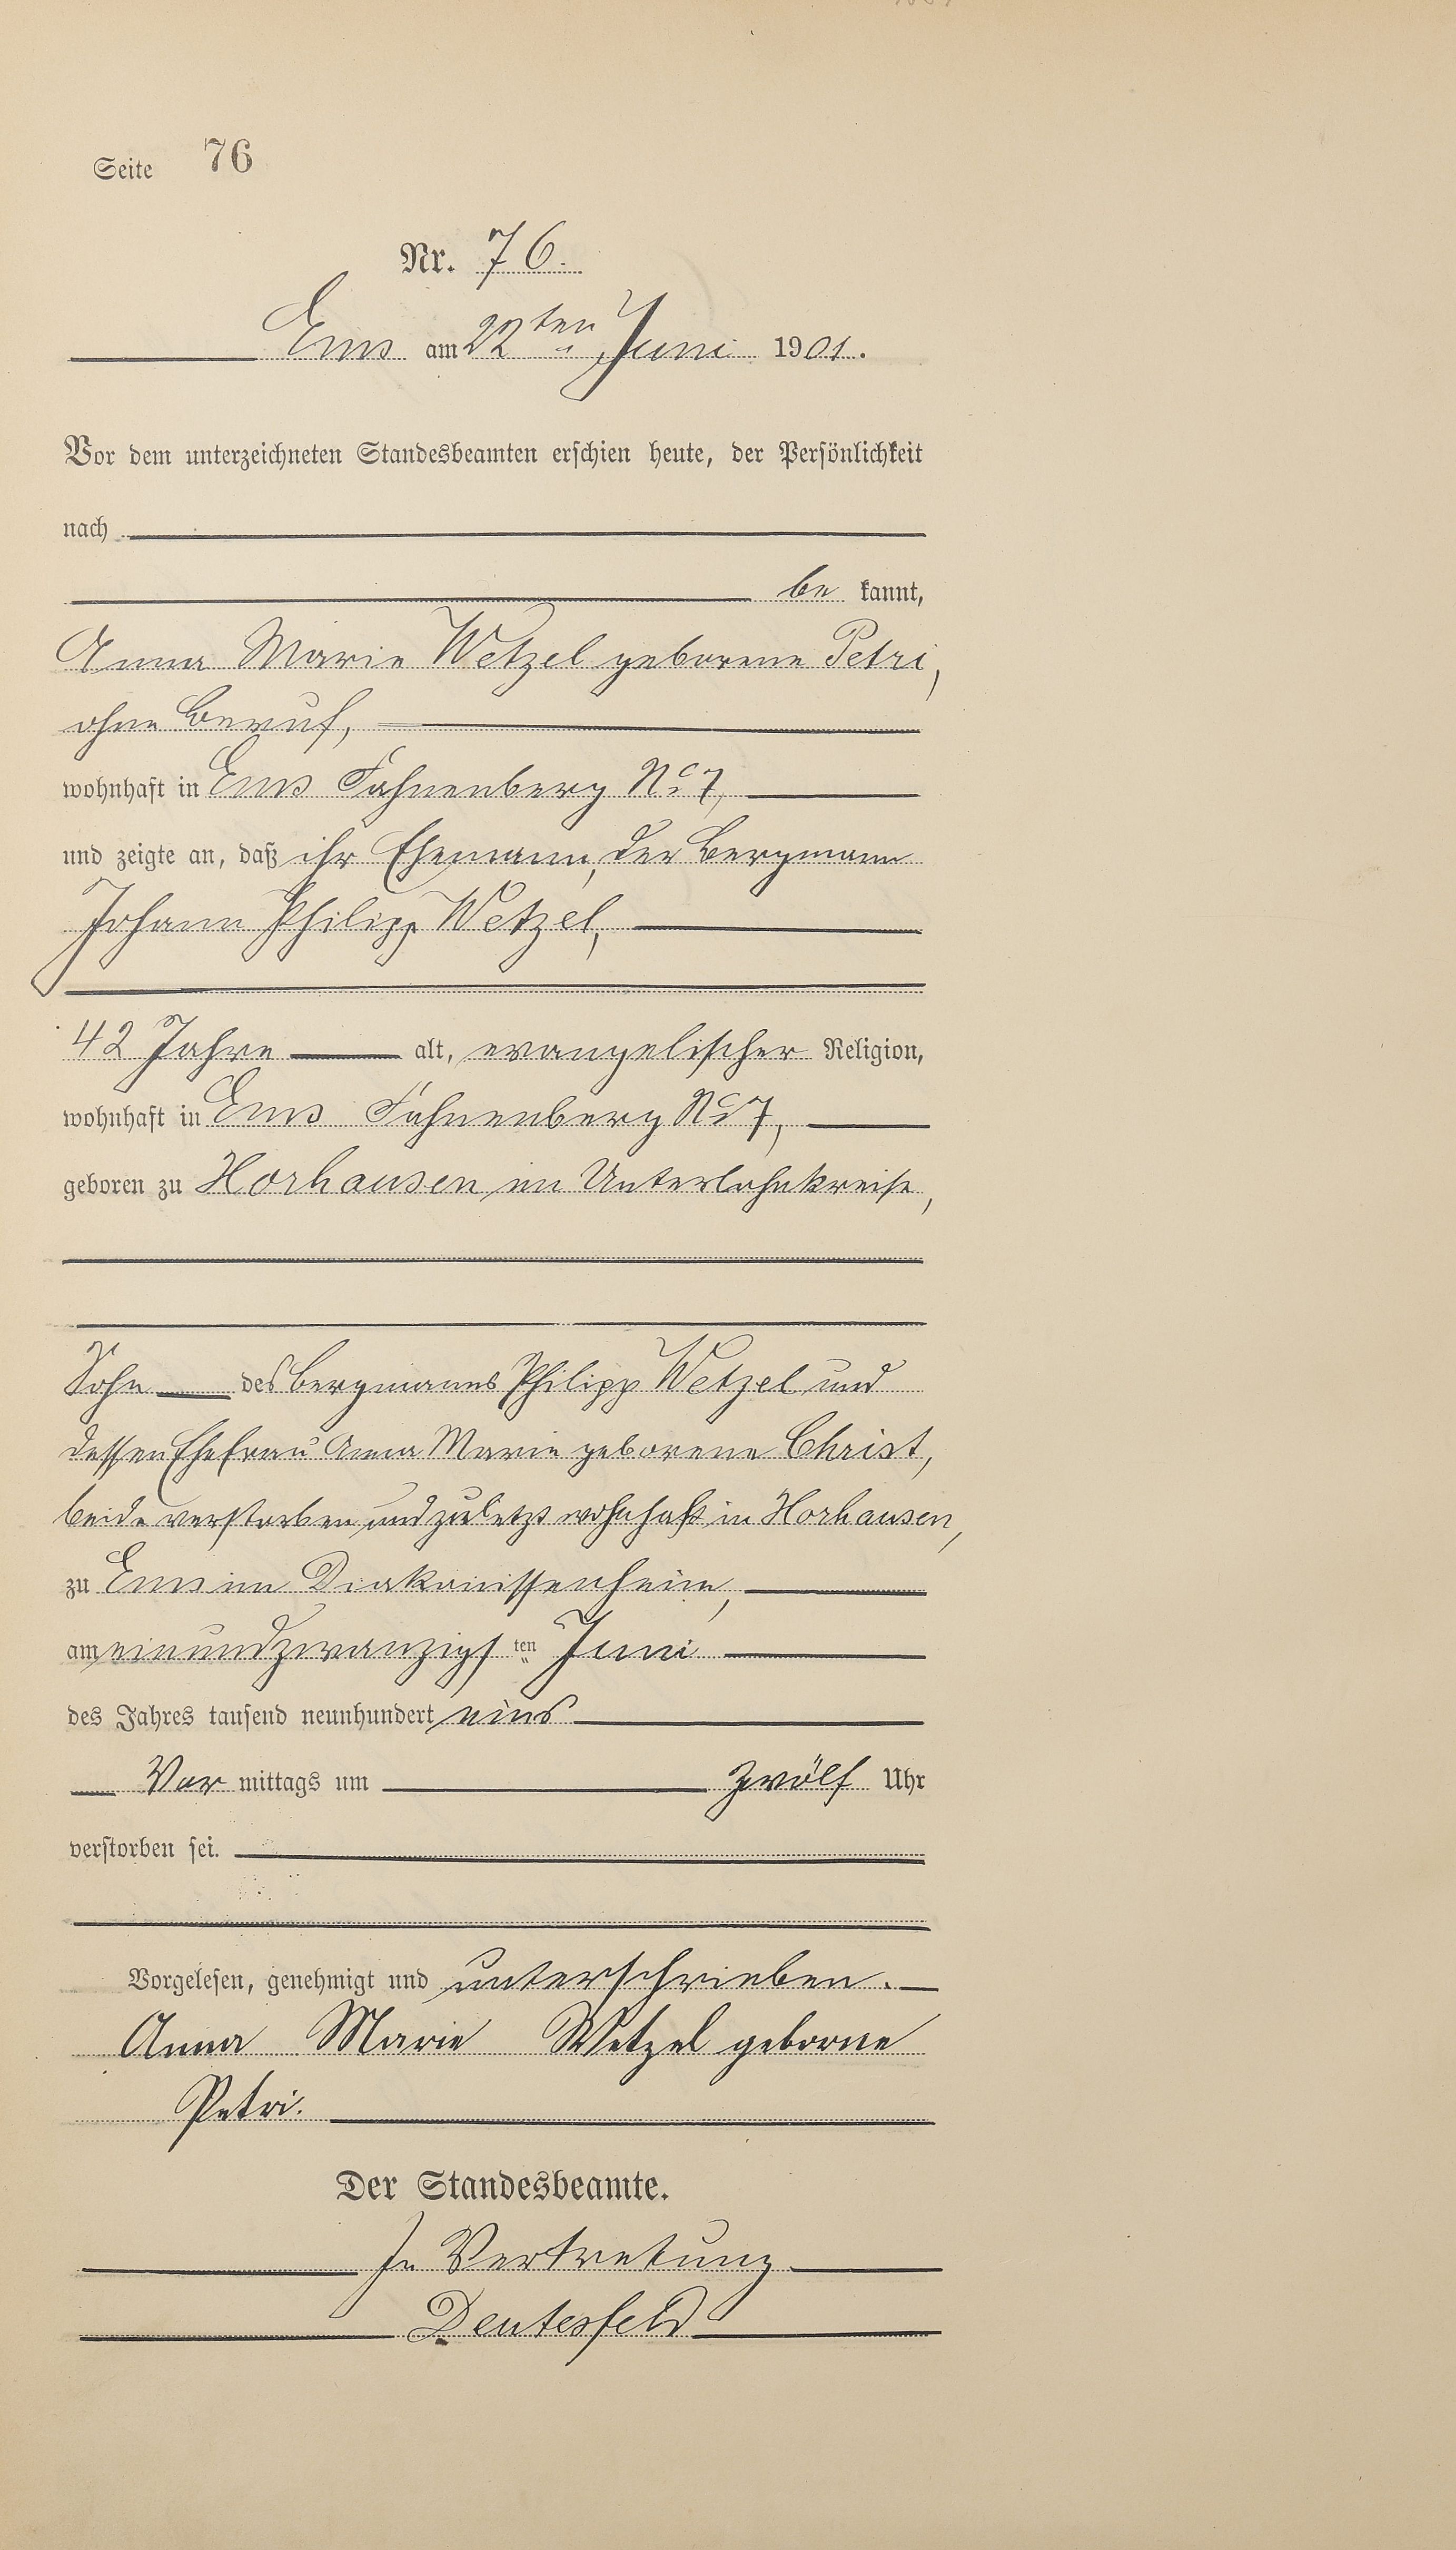 Seite 76
Nr. 76.
Ems am 22ten Juni 1901.
Vor dem unterzeichneten Standesbeamten erschien heute, der Persönlichkeit
nach
be kannt,
Anna Marie Wetzel geborene Petri,
ohne Beruf,
wohnhaft in Ems Fahnenberg No 7,
und zeigte an, daß ihr Ehemann, der Bergmann
Johann Philipp Wetzel,
42 Jahre alt, evangelischer Religion,
wohnhaft in Ems Fahnenberg No 7,
geboren zu Horhausen im Unterlahnkreise,
Sohn des Bergmanns Philipp Wetzel und
dessen Ehefrau Anna Marie geborene Christ,
beide verstorben und zuletzt wohnhaft in Horhausen,
zu Ems im Diakonissenheim,
am einundzwanzigsten Juni
des Jahres tausend neunhundert eins
Vor mittags um zwölf Uhr
verstorben sei.
Vorgelesen, genehmigt und unterschrieben.
Anna Marie Wetzel geborne
Petri.
Der Standesbeamte.
In Vertretung
Deutesfeld